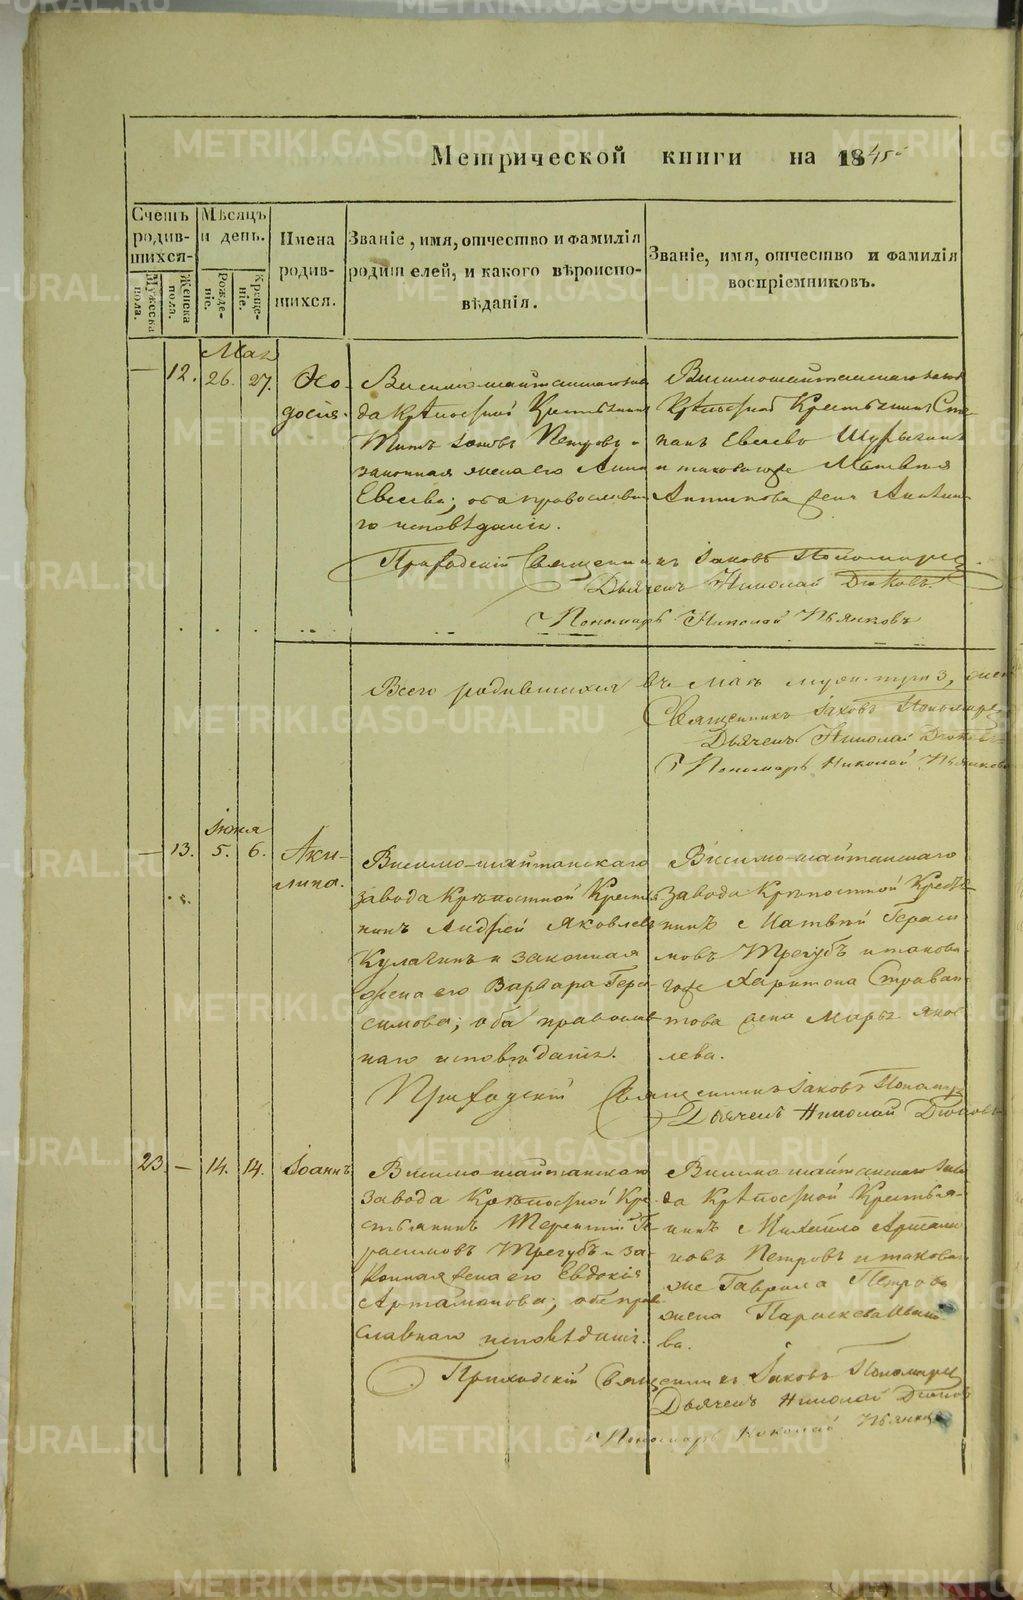 Метрической книги на 1845
Счетъ родив-шихся.
Мужеска пола.
Женска пола.
Мѣсяцъ и день.
Рожде-ніе.
Креще-ніе.
Имена родив-шихся.
Званіе, имя, отчество и фамилія
родителей, и какого вѣроиспо-
вѣданія.
Званіе, имя, отчество и фамилія
воспріемниковъ.
Мая
— 12. 26. 27.
Ѳео-
досія.
Висимошайтанскаго заво
да крѣпостной Крестьянинъ
Титъ Іаковъ Петровъ и
законная жена его Анна
Евсеева; оба православна
го исповѣданія.
Висимошайтанскаго завода
Крѣпостной Крестьянинъ Сте
панъ Евсеевъ
и таковаго же Матвея
Антипова жена
Приходскій Священникъ Іаковъ Пономарев
Дьячекъ Николай Дюковъ.
Пономарь Николай Пьянковъ
Всего родившихся въ Маѣ муж. три 3, жен
Священникъ Іаковъ Пономаре
Дьячекъ Николай Дюков
Пономарь Николай Пьянков
Іюня
— 13. 5. 6.
Аки-
лина.
Висимо-шайтанскаго
завода Крѣпостной Кресть
нинъ Андрей Яковлевъ
Кулагинъ и законная
жена его Варвара Гера
симова; оба православ
наго исповѣданія.
Висимо-шайтанскаго
завода Крѣпостной Кресть
нинъ Матвѣй Гераси
мовъ Трегубъ и таково
гоже Харитона
жена Марья Яков
лева.
Приходскій Священникъ Іаковъ Пономар
Дьячекъ Николай Дюковъ
23 — 14. 14.
Іоаннъ
Висимошайтанскаго
завода Крѣпостной Кре-
стьянинъ Терентій Ге
расимовъ Трегубъ и за-
конная жена его Евдокія
Артамонова; оба право
славнаго исповѣданія.
Висимошайтанскаго заво
да Крѣпостной Крестья-
нинъ Михайло Артамо
новъ Петровъ и таковаго
же Гаврила Петрова
жена Параскева Ивано
ва.
Приходскій Священникъ Іаковъ Пономарев
Дьячекъ Николай Дюков
Пономарь Николай Пьянков
METRIKI.GASO-URAL.RU